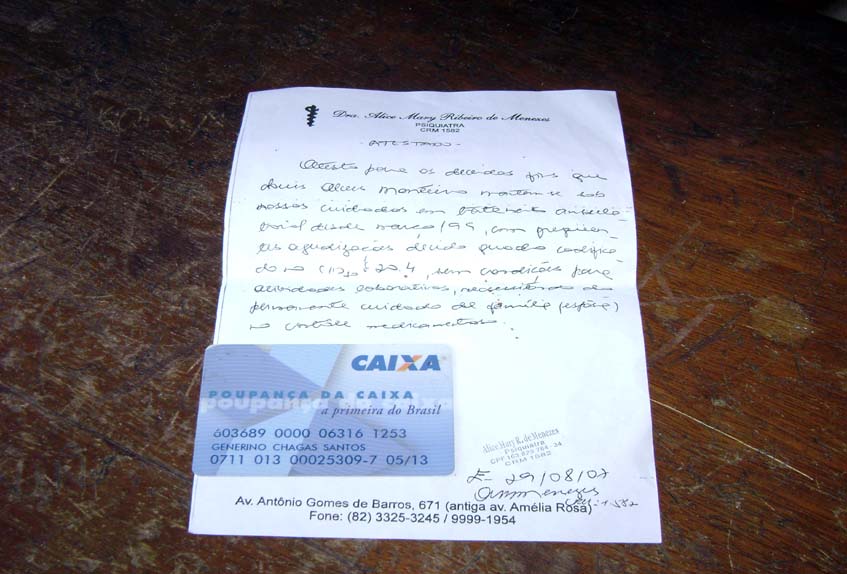 Dra. Alice Mary Ribeiro de Menezes
PSIQUIATRA
CRM 1582
- ATESTADO -
Atesto para os devidos fins que
Monteiro mantem-se sob
nossos cuidados em
desde março/99, com
agudizações devido quadro codifica
do no F 20.4, sem condições para
atividades laborativas, necessitando de
permanente cuidado de família (esposa)
no controle medicamentoso.
CAIXA
POUPANÇA DA CAIXA
poupança da caixa
a primeira do Brasil
603689 0000 06316 1253
GENERINO CHAGAS SANTOS
0711 013 00025309-7 05/13
Alice Mary R. de Menezes
Psiquiatra
CRM 1582
29/08/07
Av. Antônio Gomes de Barros, 671 (antiga av. Amélia Rosa)
Fone: (82) 3325-3245 / 9999-1954